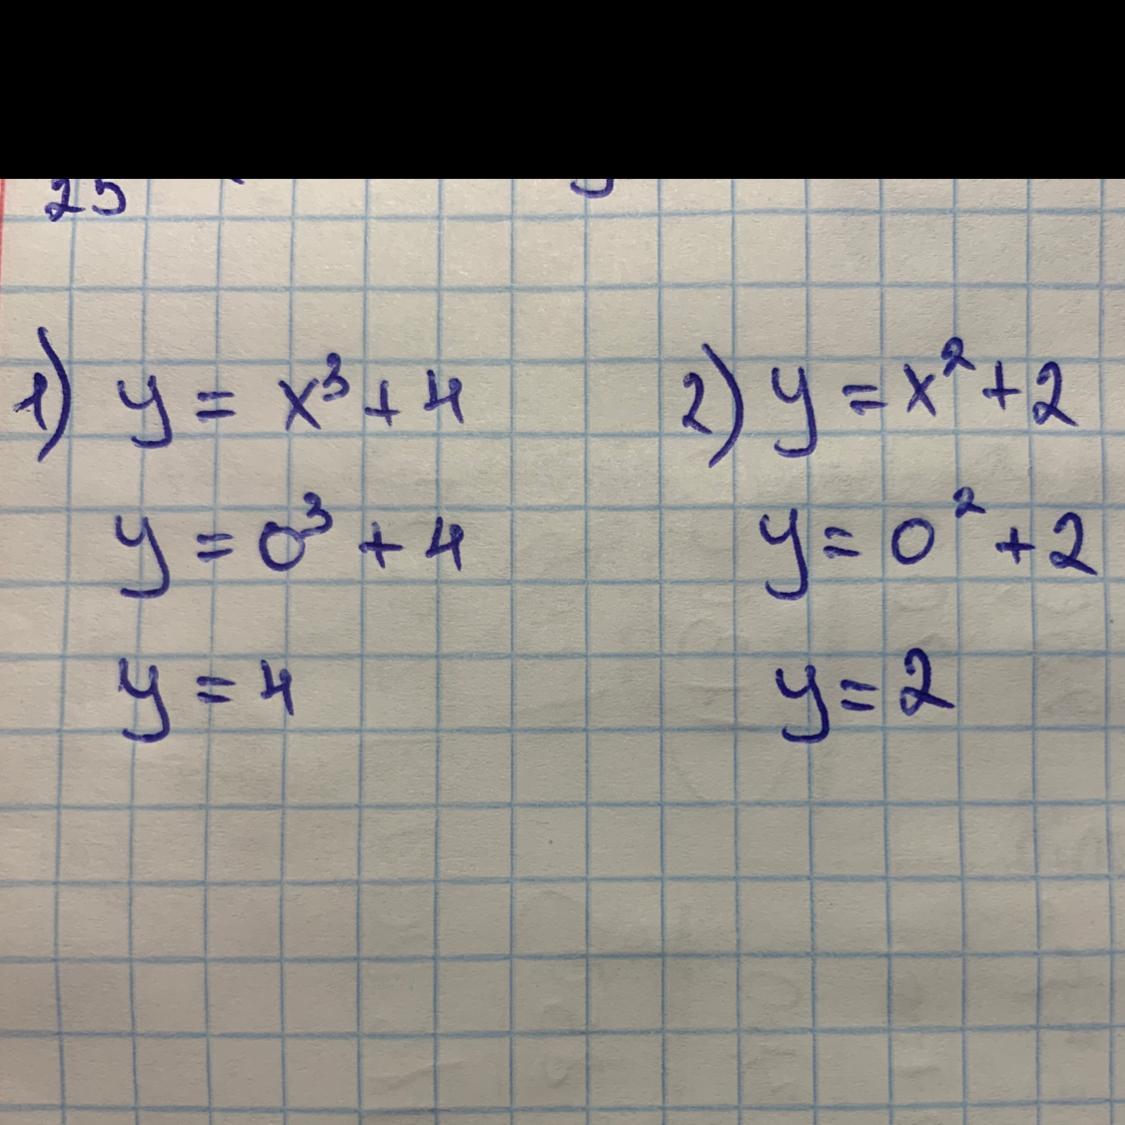 25
1) y = x³ + 4
y = 0³ + 4
y = 4
2) y = x² + 2
y = 0² + 2
y = 2